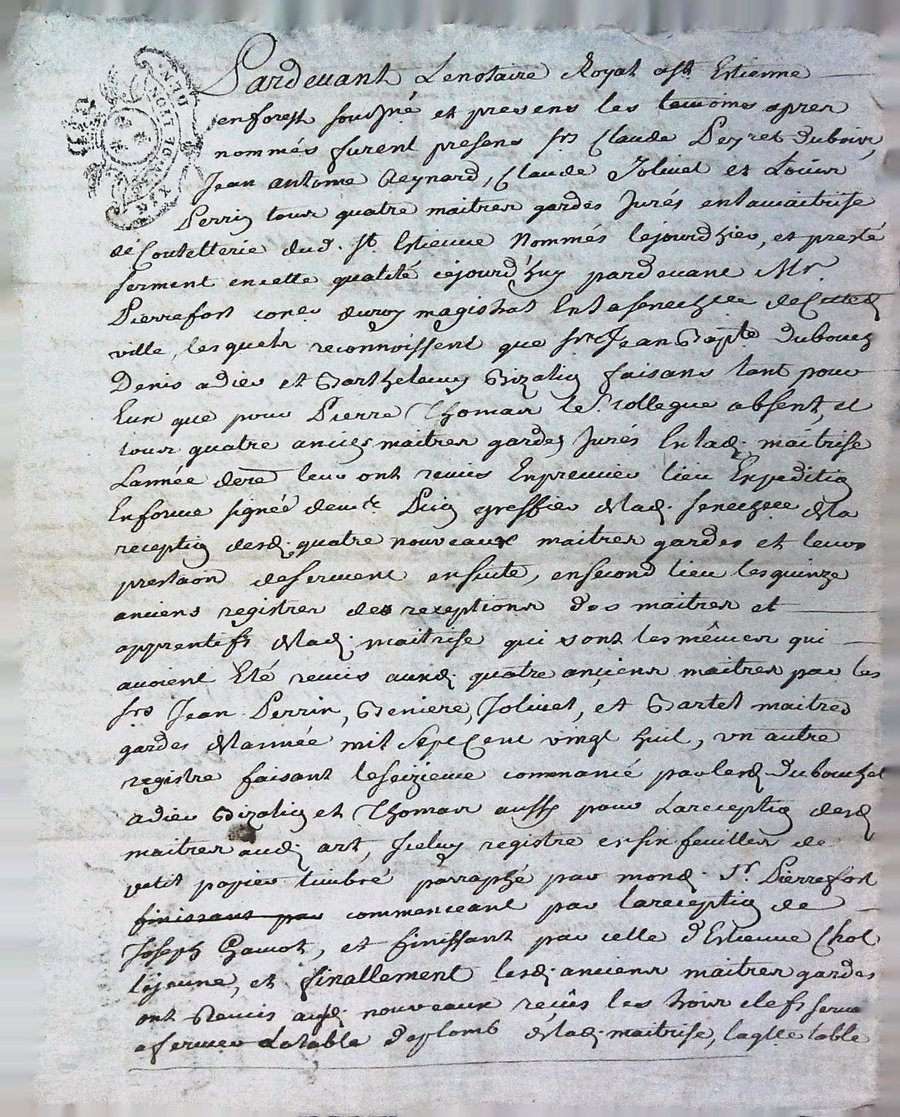 Pardevant Lenotaire Royal a St Estienne
enforest sousigné et presens les temoins apres
nommés furent presens srs Claude Peyret Dubois,
Jean antoine Reynard, Claude Jolivet et Loüis
Perrin tous quatre maitres gardes Jurés en la maitrise
de Coutellerie dud. St Estienne Nommés lejourd'hier, et presté
serment encette qualité cejourd'huy pardevant Mr
Pierrefort coner duroy magistrat En la senechée de cette
ville, lesquels reconnoissent que srs Jean Bapte Dubouch
Denis adier et Barthelemy Bizalion faisans tant pour
Eux que pour Pierre Thomas le collegue absent, et
tous quatre anciens maitres gardes Jurés En lad. maitrise
Lannée dere leur ont remis Enpremier lieu Expedition
Enforme signée de greffier de lad. senechée de la
reception desd. quatre nouveaux maitres gardes et leurs
prestaon deserment ensuite, ensecond lieu les quinze
anciens registres des receptions des maitres et
apprentifs de lad. maitrise qui sont les mêmes qui
avoient Eté remis auxd. quatre anciens maitres par les
srs Jean Perrin, Beniere, Jolivet, et Bartel maitres
gardes de lannée mil sept Cent vingt huit, un autre
registre faisant le seizieme commancé par lesd Dubouchet
adier Bizalion et Thomas aussy pour Lareception desd
maitres aud. art, Iceluy registre en six feuilles de
petit papier timbré parraphé par mond. Sr. Pierrefort
finissant par commenceant par lareception de
Joseph Gavot, et finissant par celle d'Estienne Chol
lejeune, et finallement lesd. anciens maitres gardes
ont Remis auxd. nouveaux reçûs les trois clefs servant
a fermer La table de plomb de lad. maitrise, laqlle table